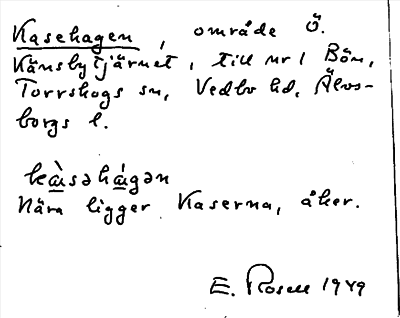 Kasehagen, område Ö.
Känsbytjärnet, till nr 1 Bön,
Torrskogs sn, Vedbo hd, Älvs-
borgs l.
kàsəhágən
Nära ligger Kaserna, åker.
E. Rosell 1949